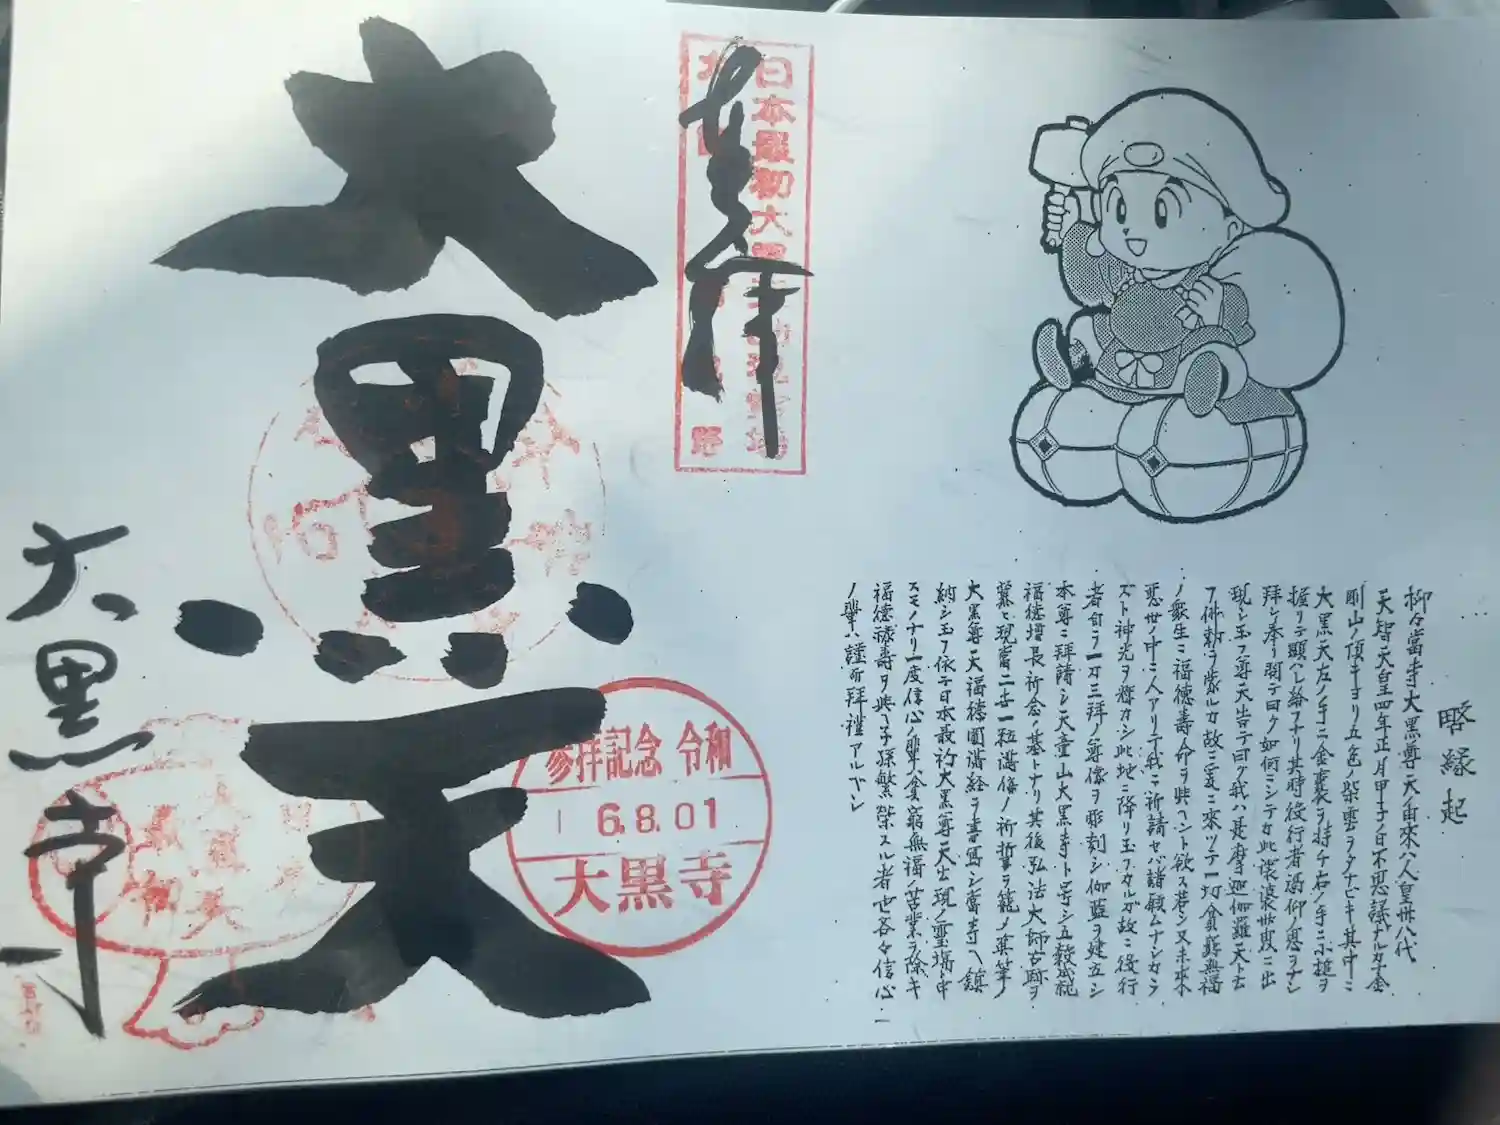 略縁起
抑々當寺大黒尊天由來ハ人皇卅八代
天智天皇四年正月甲子ノ日不思議ナル哉金
剛山ノ頂キヨリ五色ノ紫雲ヲタナビキ其中ニ
大黒天左ノ手ニ金嚢ヲ持チ右ノ手ニ小槌ヲ
握リテ顕ハレ給フナリ其時役行者渇仰ノ思ヲナシ
拜シ奉リ問テ曰ク如何ニシテカ此濁世ニ出
現シ玉フ尊天告テ曰ク我ハ是摩迦伽羅天ト云
フ佛勅ヲ蒙ルガ故ニ爰ニ來ツテ一切貧窮無福
ノ衆生ニ福徳壽命ヲ與ヘント欲ス若シ又未來
悪世ノ中ニ人アリテ我ニ祈請セバ諸願ムナシカラ
ズト神光ヲ輝カシ此地ニ降リ玉フガ故ニ役行
者自ラ一刀三拜ノ尊像ヲ彫刻シ伽藍ヲ建立シ
本尊ニ拜請シ天童山大黒寺ト号シ五穀成就
福徳増長祈念ノ基トナリ其後弘法大師古跡ヲ
慕ヒ現當二世一粒満倍ノ祈誓ヲ籠メ筆
大黒尊天福徳圓満経ヲ書寫シ當寺ヘ鎮
納シ玉フ依テ日本最初大黒尊天出現ノ霊場
スモノナリ一度信心ノ輩ハ貧窮無福ノ苦業ヲ除キ
福徳禄壽ヲ與ヘ子孫繁榮スル者也各々信心
ノ輩ハ謹而拜禮アルベシ
奉拝
日本最初大黒天出現霊場
大黒天
参拝記念 令和
6.8.01
大黒寺
大黒寺